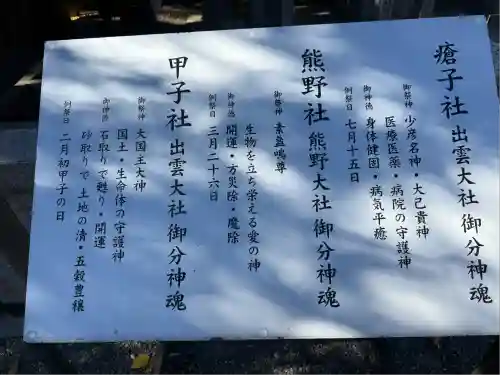 瘡子社 出雲大社 御分神魂
御祭神 少彦名神・大己貴神
医療医薬・病院の守護神
御神徳 身体健固・病気平癒
例祭日 七月十五日
熊野社 熊野大社 御分神魂
御祭神 素盞鳴尊
生物を立ち栄える愛の神
御神徳 開運・方災除・魔除
例祭日 三月二十六日
甲子社 出雲大社 御分神魂
御祭神 大国主大神
国土・生命体の守護神
御神徳 石取りで甦り・開運
砂取りで土地の清・五穀豊穣
例祭日 二月初甲子の日